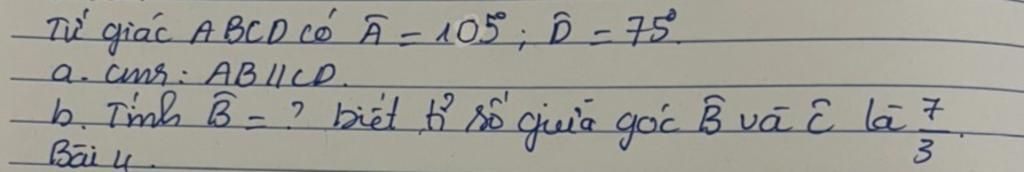 Tứ giác ABCD có Â = 105°; D̂ = 75°.
a. cmr: AB//CD.
b. Tính B̂ = ? biết tỉ số giữa góc B̂ và Ĉ là 7/3.
Bài 4.